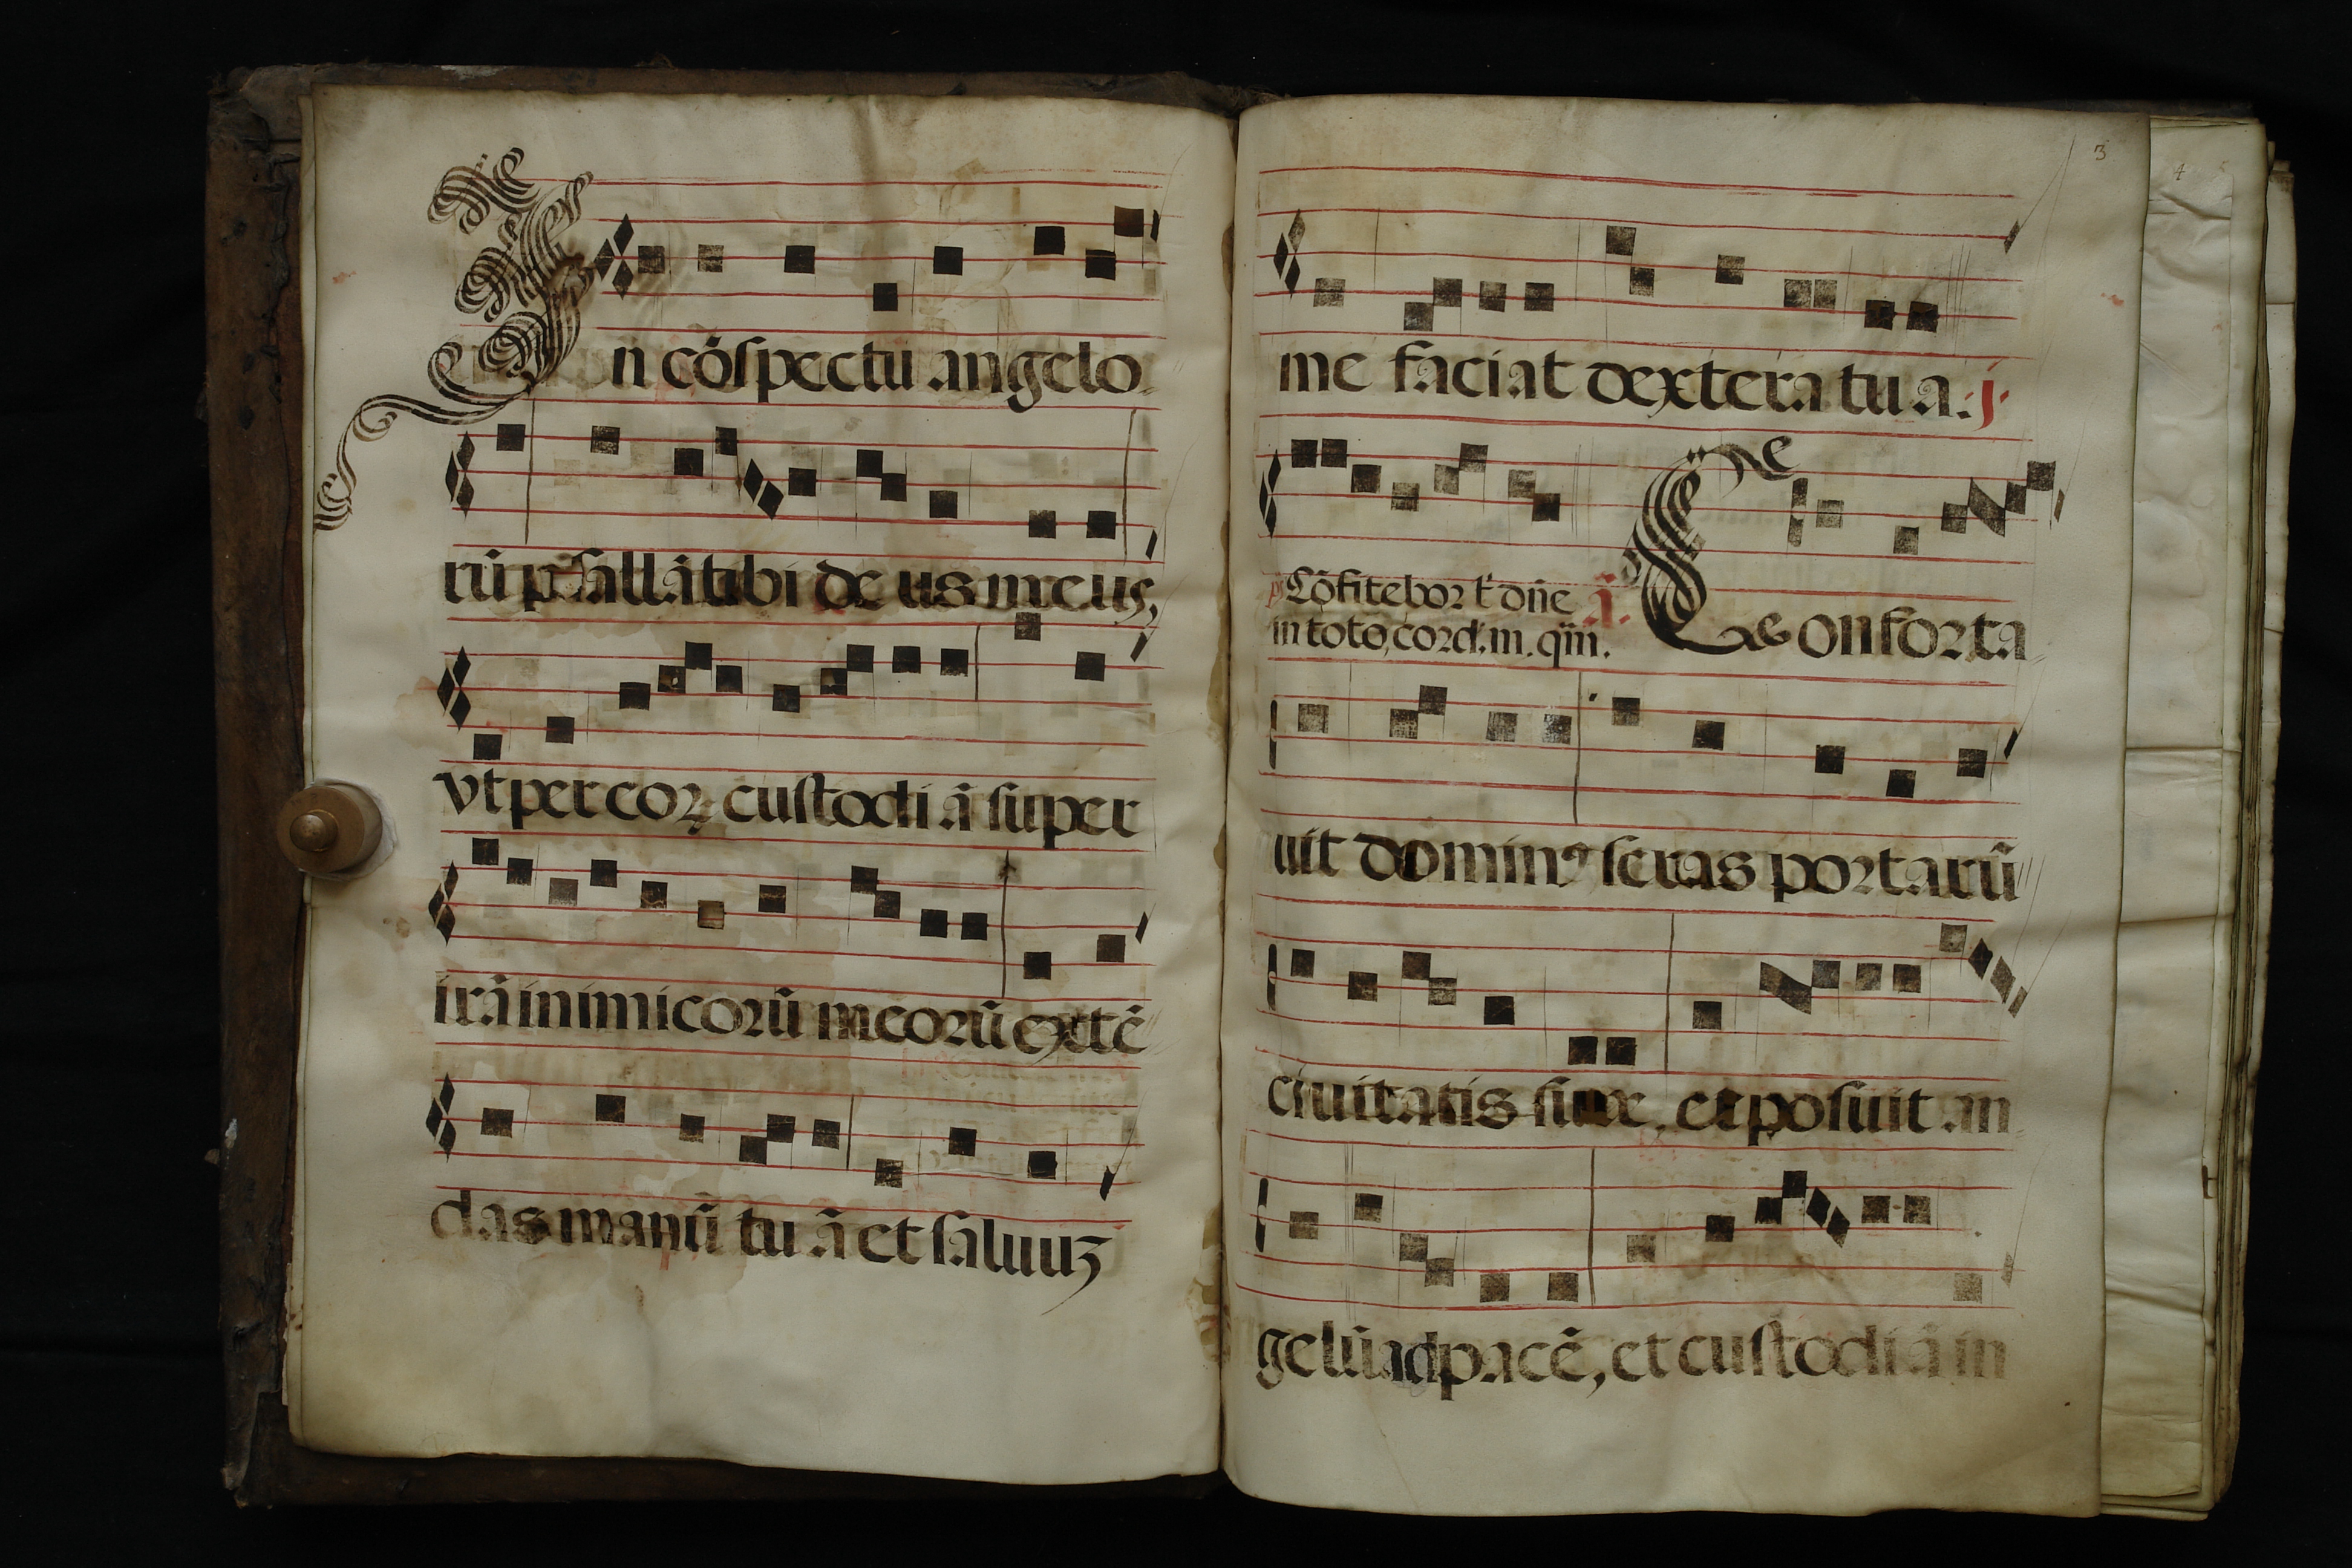 In cõspectu angelo
rũ psallã tibi deus meus,
vt per eoꝝ custodiã super
irã inimicorũ meorũ extẽ
das manũ tuã et saluuꝫ
3
me faciat dextera tua. j.
ps Cõfitebor t' dñe
in toto, cord. m. qm̃. ã. Conforta
uit dominꝰ seras portarũ
ciuitatis suæ, et posuit an
gelũ ad pacẽ, et custodiã in
4
5